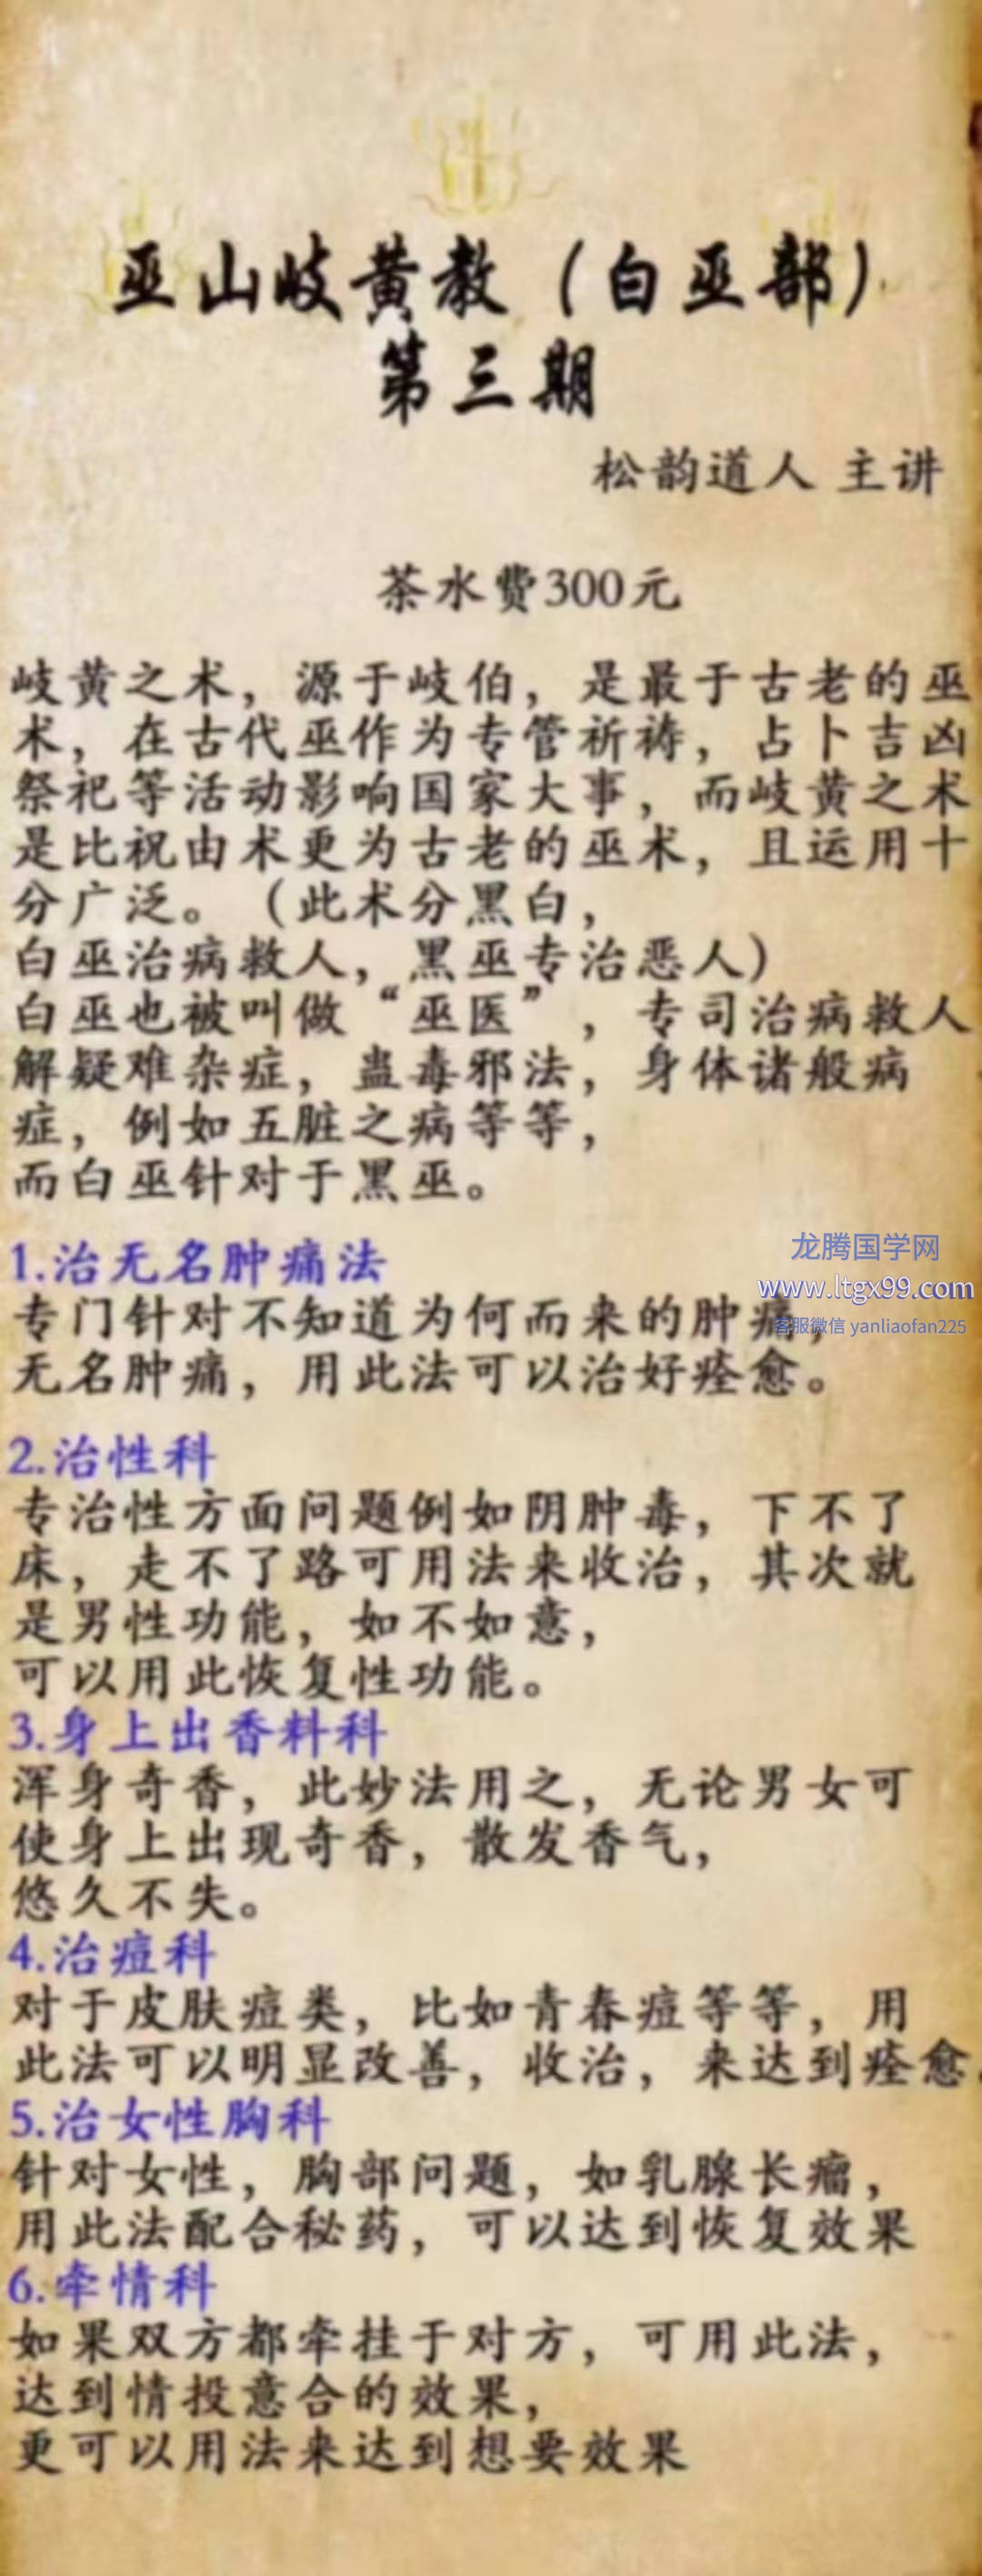 巫山岐黄教（白巫部）
第三期
松韵道人 主讲
茶水费300元
岐黄之术，源于岐伯，是最于古老的巫
术，在古代巫作为专管祈祷，占卜吉凶
祭祀等活动影响国家大事，而岐黄之术
是比祝由术更为古老的巫术，且运用十
分广泛。（此术分黑白，
白巫治病救人，黑巫专治恶人）
白巫也被叫做“巫医”，专司治病救人
解疑难杂症，蛊毒邪法，身体诸般病
症，例如五脏之病等等，
而白巫针对于黑巫。
1.治无名肿痛法
专门针对不知道为何而来的肿痛，
无名肿痛，用此法可以治好痊愈。
龙腾国学网
www.ltgx99.com
客服微信 yanliaofan225
2.治性科
专治性方面问题例如阴肿毒，下不了
床，走不了路可用法来收治，其次就
是男性功能，如不如意，
可以用此恢复性功能。
3.身上出香料科
浑身奇香，此妙法用之，无论男女可
使身上出现奇香，散发香气，
悠久不失。
4.治痘科
对于皮肤痘类，比如青春痘等等，用
此法可以明显改善，收治，来达到痊愈。
5.治女性胸科
针对女性，胸部问题，如乳腺长瘤，
用此法配合秘药，可以达到恢复效果
6.牵情科
如果双方都牵挂于对方，可用此法，
达到情投意合的效果，
更可以用法来达到想要效果